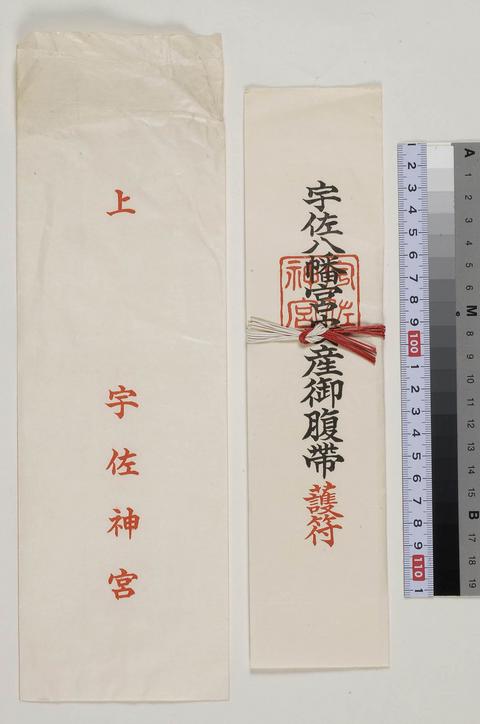 上
宇佐神宮
宇佐八幡宮安産御腹帶護符
宇佐神宮
1 2 3 4 5 6 7 8 9 100 1 2 3 4 5 6 7 8 9 110 1
A 1 2 3 4 5 6 M 8 9 10 11 12 13 14 15 B 17 18 19